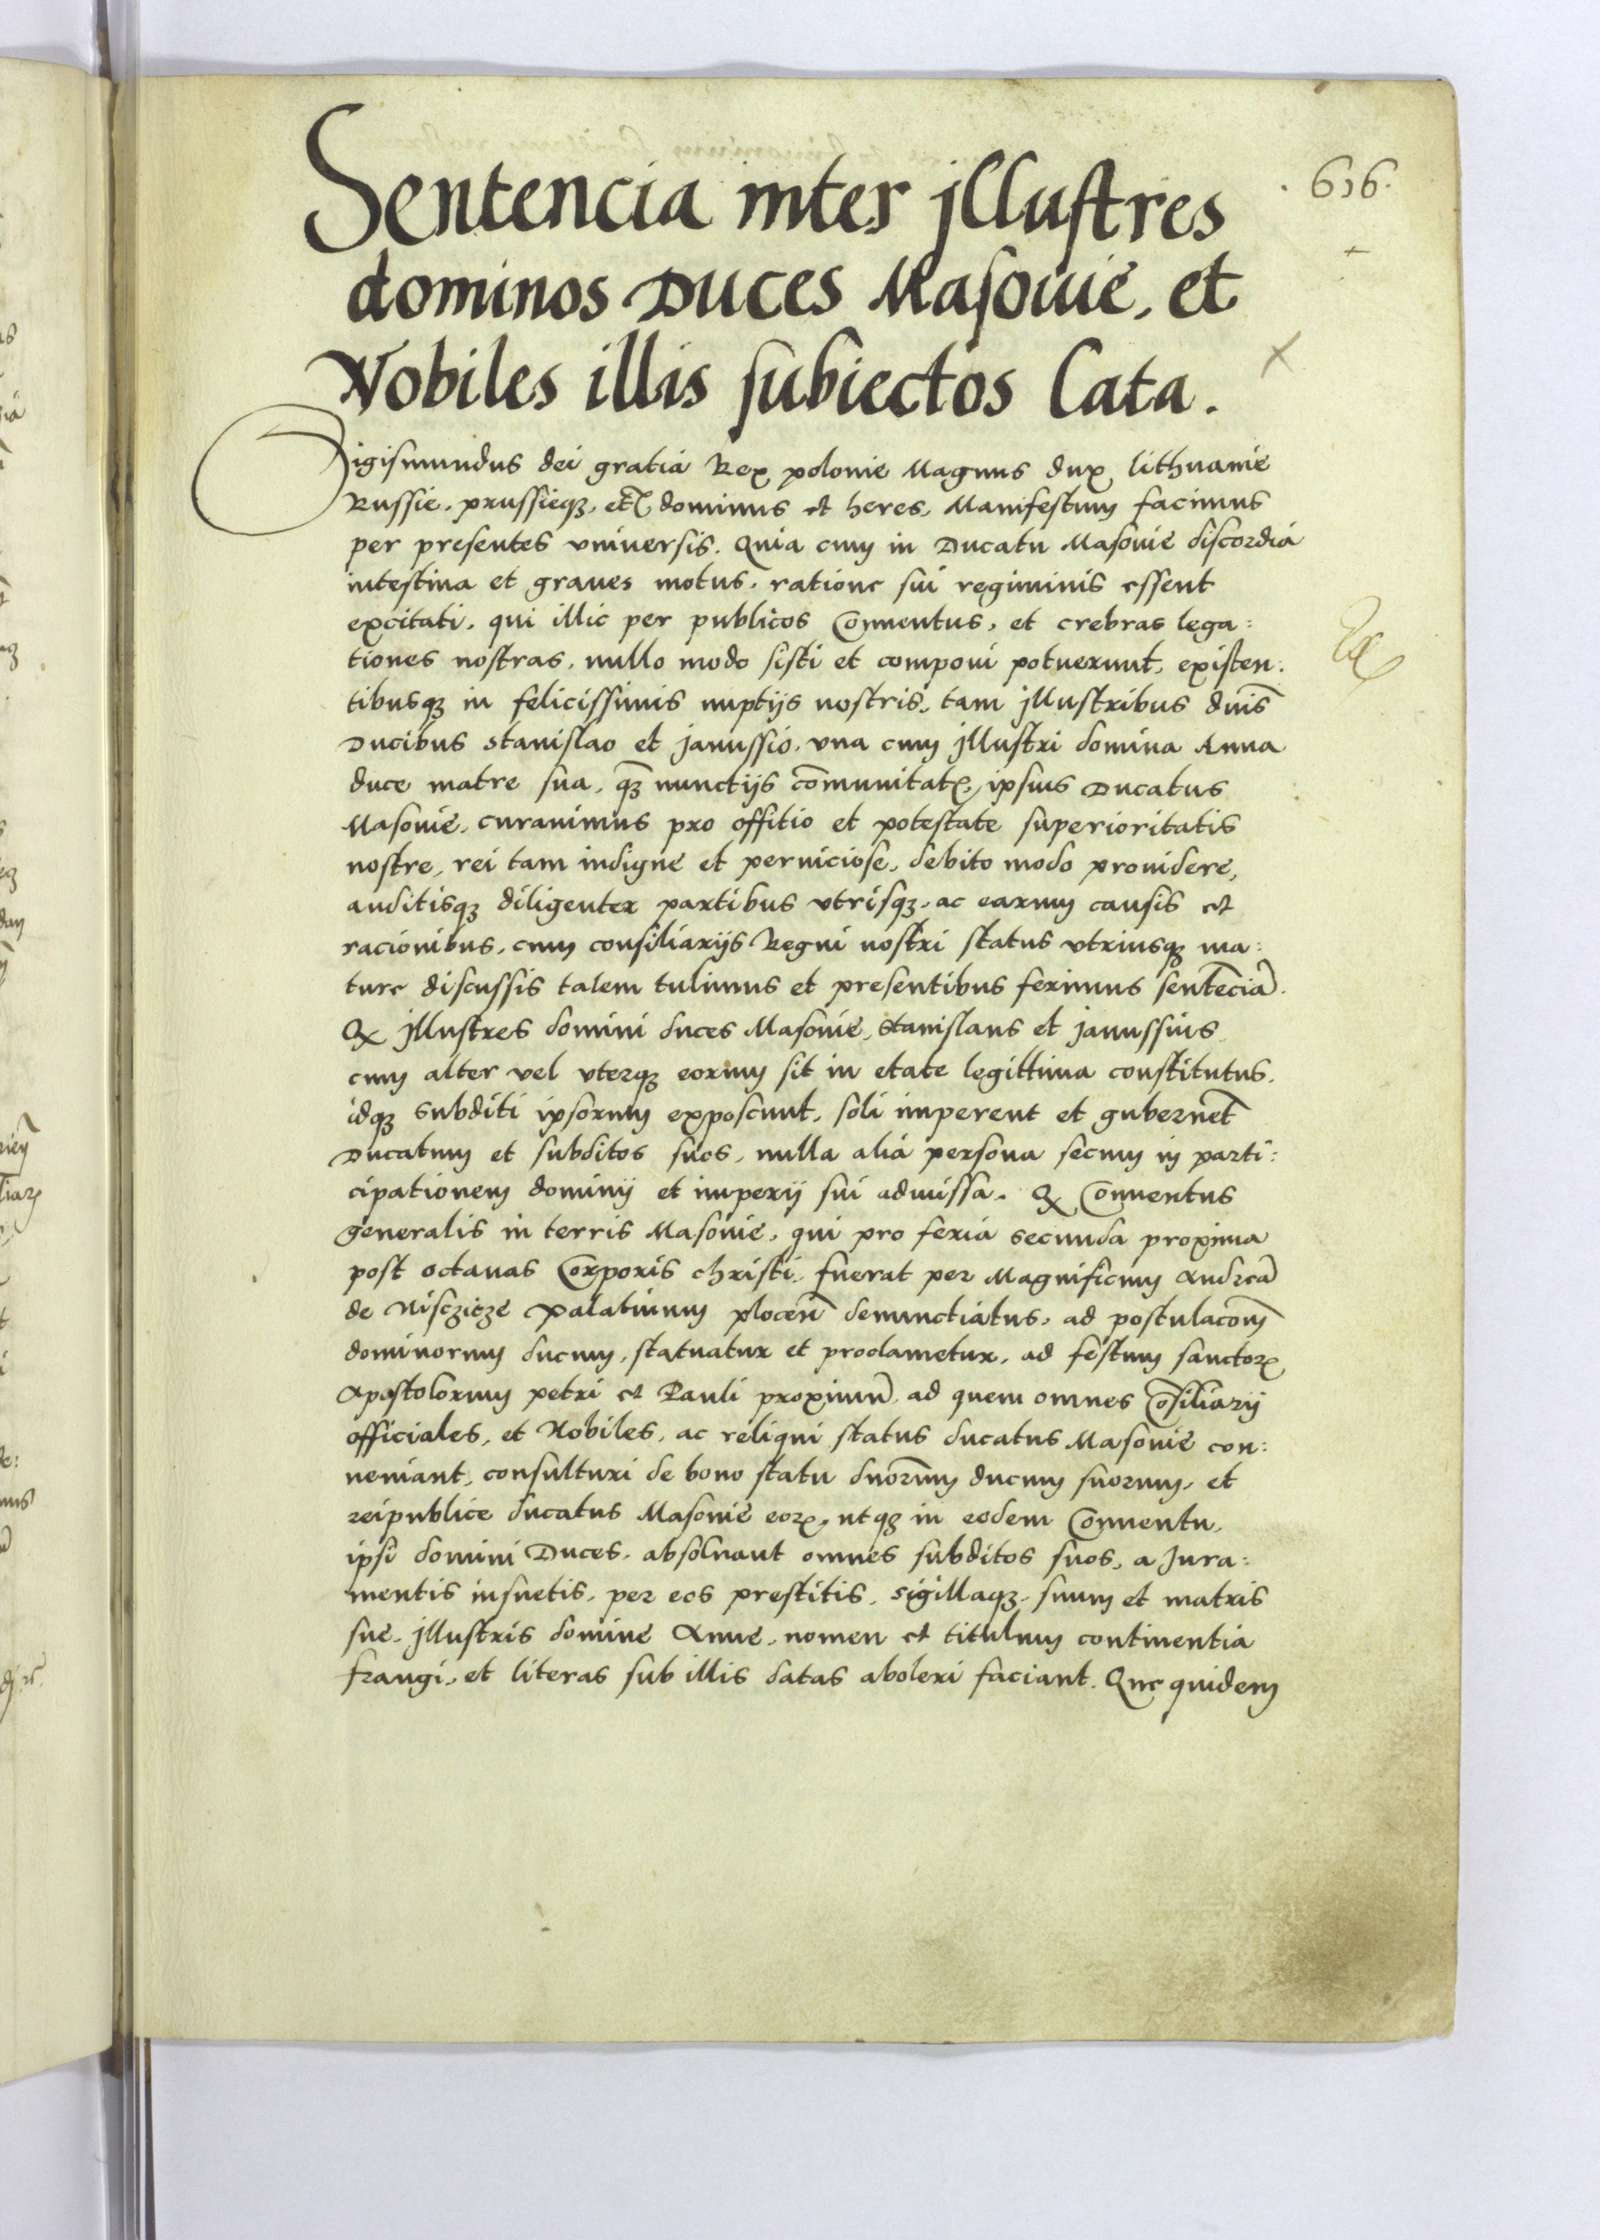 Sentencia inter jllustres
. 616 .
dominos Duces Masouie, et
Nobiles illis subiectos Lata .
Sigismundus dei gratia Rex polonie Magnus dux lithuanie
Russie, prussieqꝫ, etc̃ dominus et heres, Manifestum facimus
per presentes vniuersis. Quia cum in Ducatu Masouie discordia
intestina et graues motus, ratione sui regiminis essent
excitati, qui illic per publicos Conuentus, et crebras lega:
tiones nostras, nullo modo sisti et componi potuerunt, existen:
tibusqꝫ in felicissimis nuptijs nostris, tam jllustribus dnĩs
Ducibus Stanislao et janussio, vna cum jllustri domina Anna
duce matre sua, qꝫ̃ nunctijs cõmunitatꝭ, ipsius Ducatus
Masouie, curauimus pro offitio et potestate superioritatis
nostre, rei tam indigne et perniciose, debito modo prouidere,
auditisqꝫ diligenter partibus vtrisqꝫ, ac earum causis et
racionibus, cum consiliarijs Regni nostri status vtriusqꝫ ma:
ture discussis talem tulimus et presentibus ferimus sentẽciã.
Qꝫ jllustres domini duces Masouie, Stanislaus et janussius
cum alter vel vterqꝫ eorum sit in etate legittima constitutus,
idqꝫ subditi ipsorum exposcunt, soli imperent et gubernẽt
Ducatum et subditos suos, nulla alia persona secum in parti:
cipationem dominij et imperij sui admissa. Qꝫ Conuentus
generalis in terris Masouie, qui pro feria secunda proxima
post octauas Corporis christi, fuerat per Magnificum Andreã
de Nisczicze Palatinum plocen̄ denunctiatus, ad postulacoñem
dominorum ducum, statuatur et proclametur, ad festum sanctoꝝ
Apostolorum petri et Pauli proximũ, ad quem omnes Cõsiliarij
officiales, et Nobiles, ac reliqui status ducatus Masouie con:
ueniant, consulturi de bono statu dnõrum ducum suorum, et
reipublice ducatus Masouie eoꝝ, utqꝫ in eodem Conuentu,
ipsi domini Duces, absoluant omnes subditos suos, a Jura:
mentis insuetis, per eos prestitis, sigillaqꝫ, suum et matris
sue, jllustris domine Anne, nomen et titulum continentia
frangi, et literas sub illis datas aboleri faciant. Que quidem